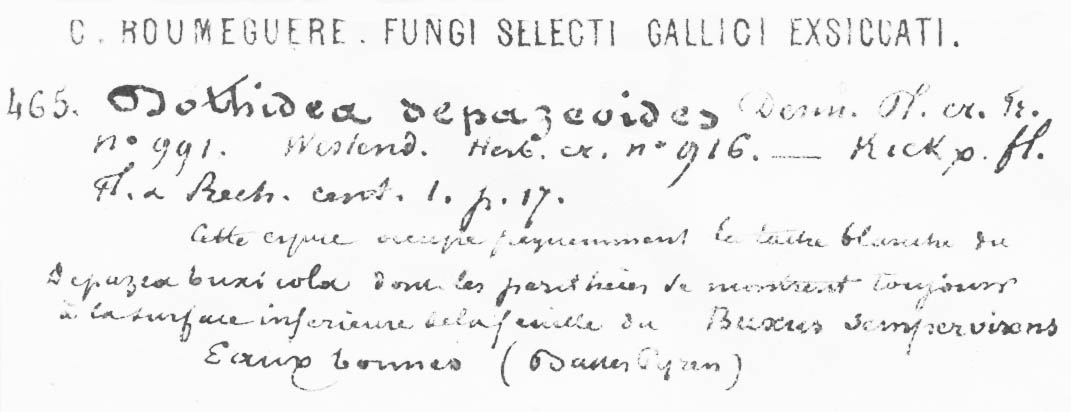 C. ROUMEGUERE. FUNGI SELECTI GALLICI EXSICCATI.
465. Dothidea depazeoides Desm. Pl. cr. Fr.
n° 991. Westend. Herb. cr. n° 916. — Kickx p. fl.
Fl. & Rech. cent. 1. p. 17.
Cette espèce occupe fréquemment la tache blanche du
Depazea buxicola dont les perithèces se montrent toujours
à la surface inferieure de la feuille du Buxus sempervirens
Eaux bonnes (Basses Pyren)